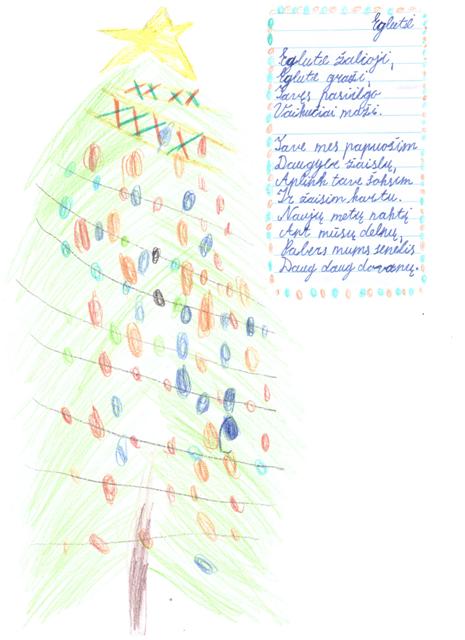 Eglutė
Eglute žalioji,
Eglute graži,
Tavęs pasiilgo
Vaikučiai maži.
Tave mes papuošim
Daugybe žaislų,
Aplink tave šoksim
Ir žaisim kartu.
Naujų metų naktį
Ant mūsų delnų,
Pabers mums senelis
Daug daug dovanų.